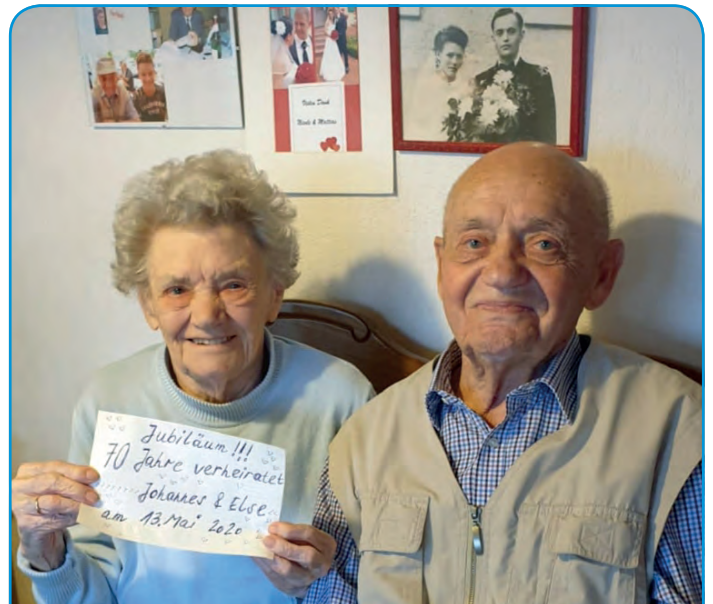 Vielen Dank
Nicole & Matthias
Jubiläum !!!
70 Jahre verheiratet
Johannes & Else
am 13. Mai 2020